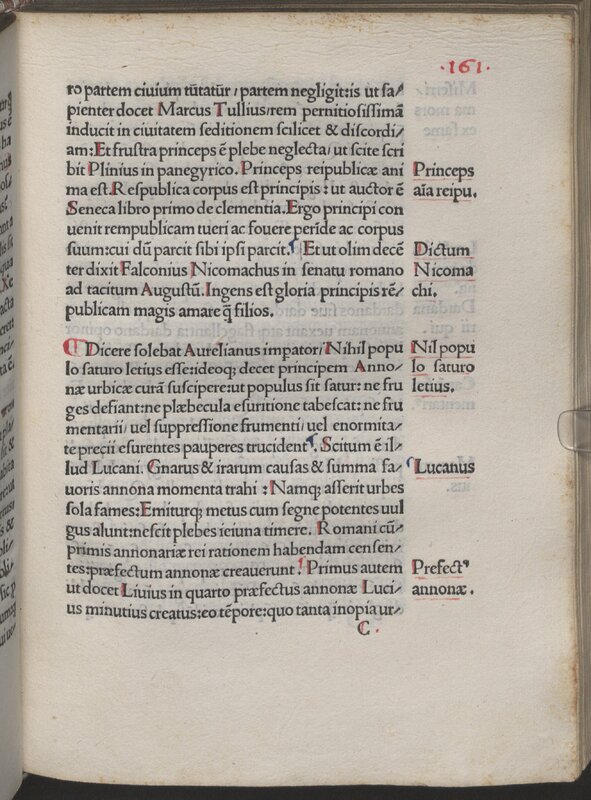 ·161·
ro partem civium tūtatūr / partem negligit: is ut sa/
pienter docet Marcus Tullius / rem pernitiosissimā
inducit in civitatem seditionem scilicet & discordi/
am: Et frustra princeps ē plebe neglecta / ut scite scri
bit Plinius in panegyrico. Princeps reipublicæ ani
ma est. Respublica corpus est principis: ut auctor ē
Seneca libro primo de clementia. Ergo principi con
uenit rempublicam tueri ac fouere perīde ac corpus
suum: cui dū parcit sibi ipsi parcit. Et ut olim decē
ter dixit Falconius Nicomachus in senatu romano
ad tacitum Augustū. Ingens est gloria principis rē/
publicam magis amare q̄ filios.
Princeps
aīa reipu.
Dictum
Nicoma
chi.
Dicere solebat Aurelianus impator / Nihil popu
lo saturo letius esse: ideoq; decet principem Anno/
næ urbicæ curā suscipere: ut populus sit satur: ne fru
ges defiant: ne plæbecula esuritione tabescat: ne fru
mentarii / uel suppressione frumenti / uel enormita/
te precii esurentes pauperes trucident. Scitum ē il/
lud Lucani. Gnarus & irarum causas & summa fa/
uoris annona momenta trahi: Namq; asserit urbes
sola fames: Emiturq; metus cum segne potentes uul
gus alunt: nescit plebes ieiuna timere. Romani cū/
primis annonariæ rei rationem habendam censen/
tes: præfectum annonæ creauerunt. Primus autem
ut docet Liuius in quarto præfectus annonæ Luci/
us minutius creatus: eo tēpore: quo tanta inopia ur/
Nil popu
lo saturo
letius.
Lucanus
Prefectꝰ
annonæ.
C.